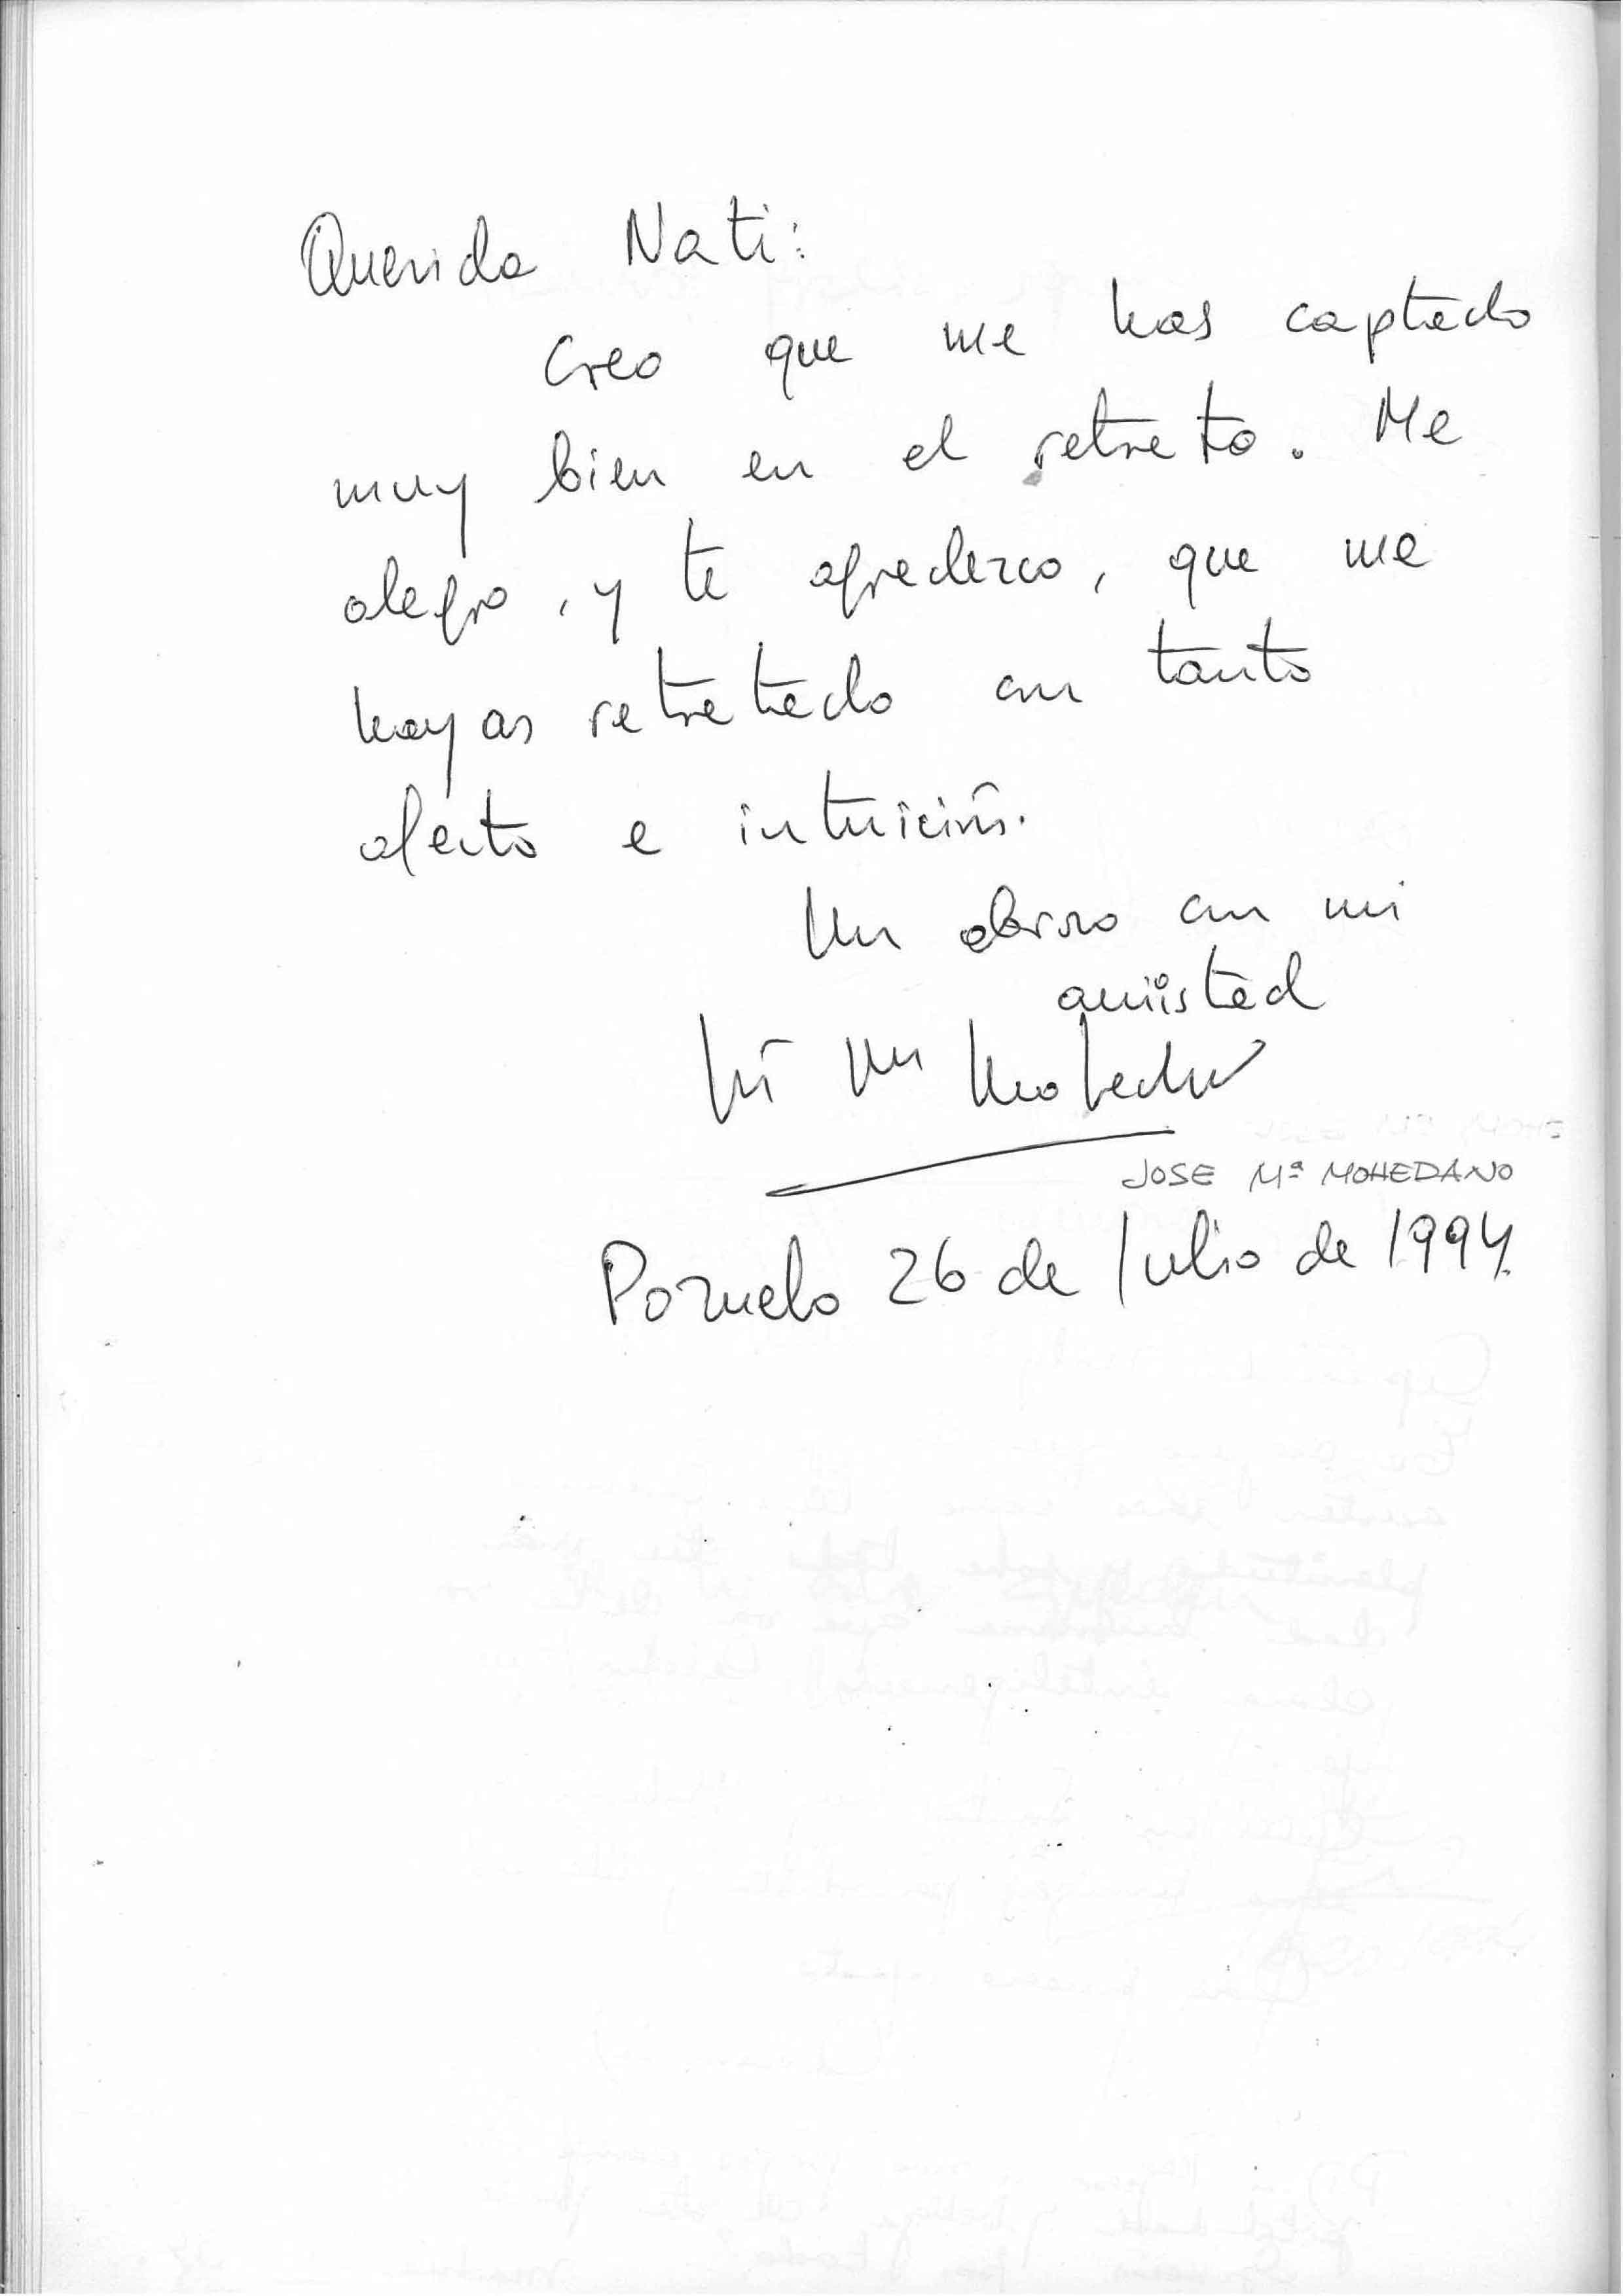 Querida Nati:
Creo que me has captado
muy bien en el retrato. Me
alegro, y te agradezco, que me
hayas retratado con tanto
afecto e intuición.
Un abrazo con mi
amistad
José Mª Mohedano
JOSE Mª MOHEDANO
Pozuelo 26 de Julio de 1994.